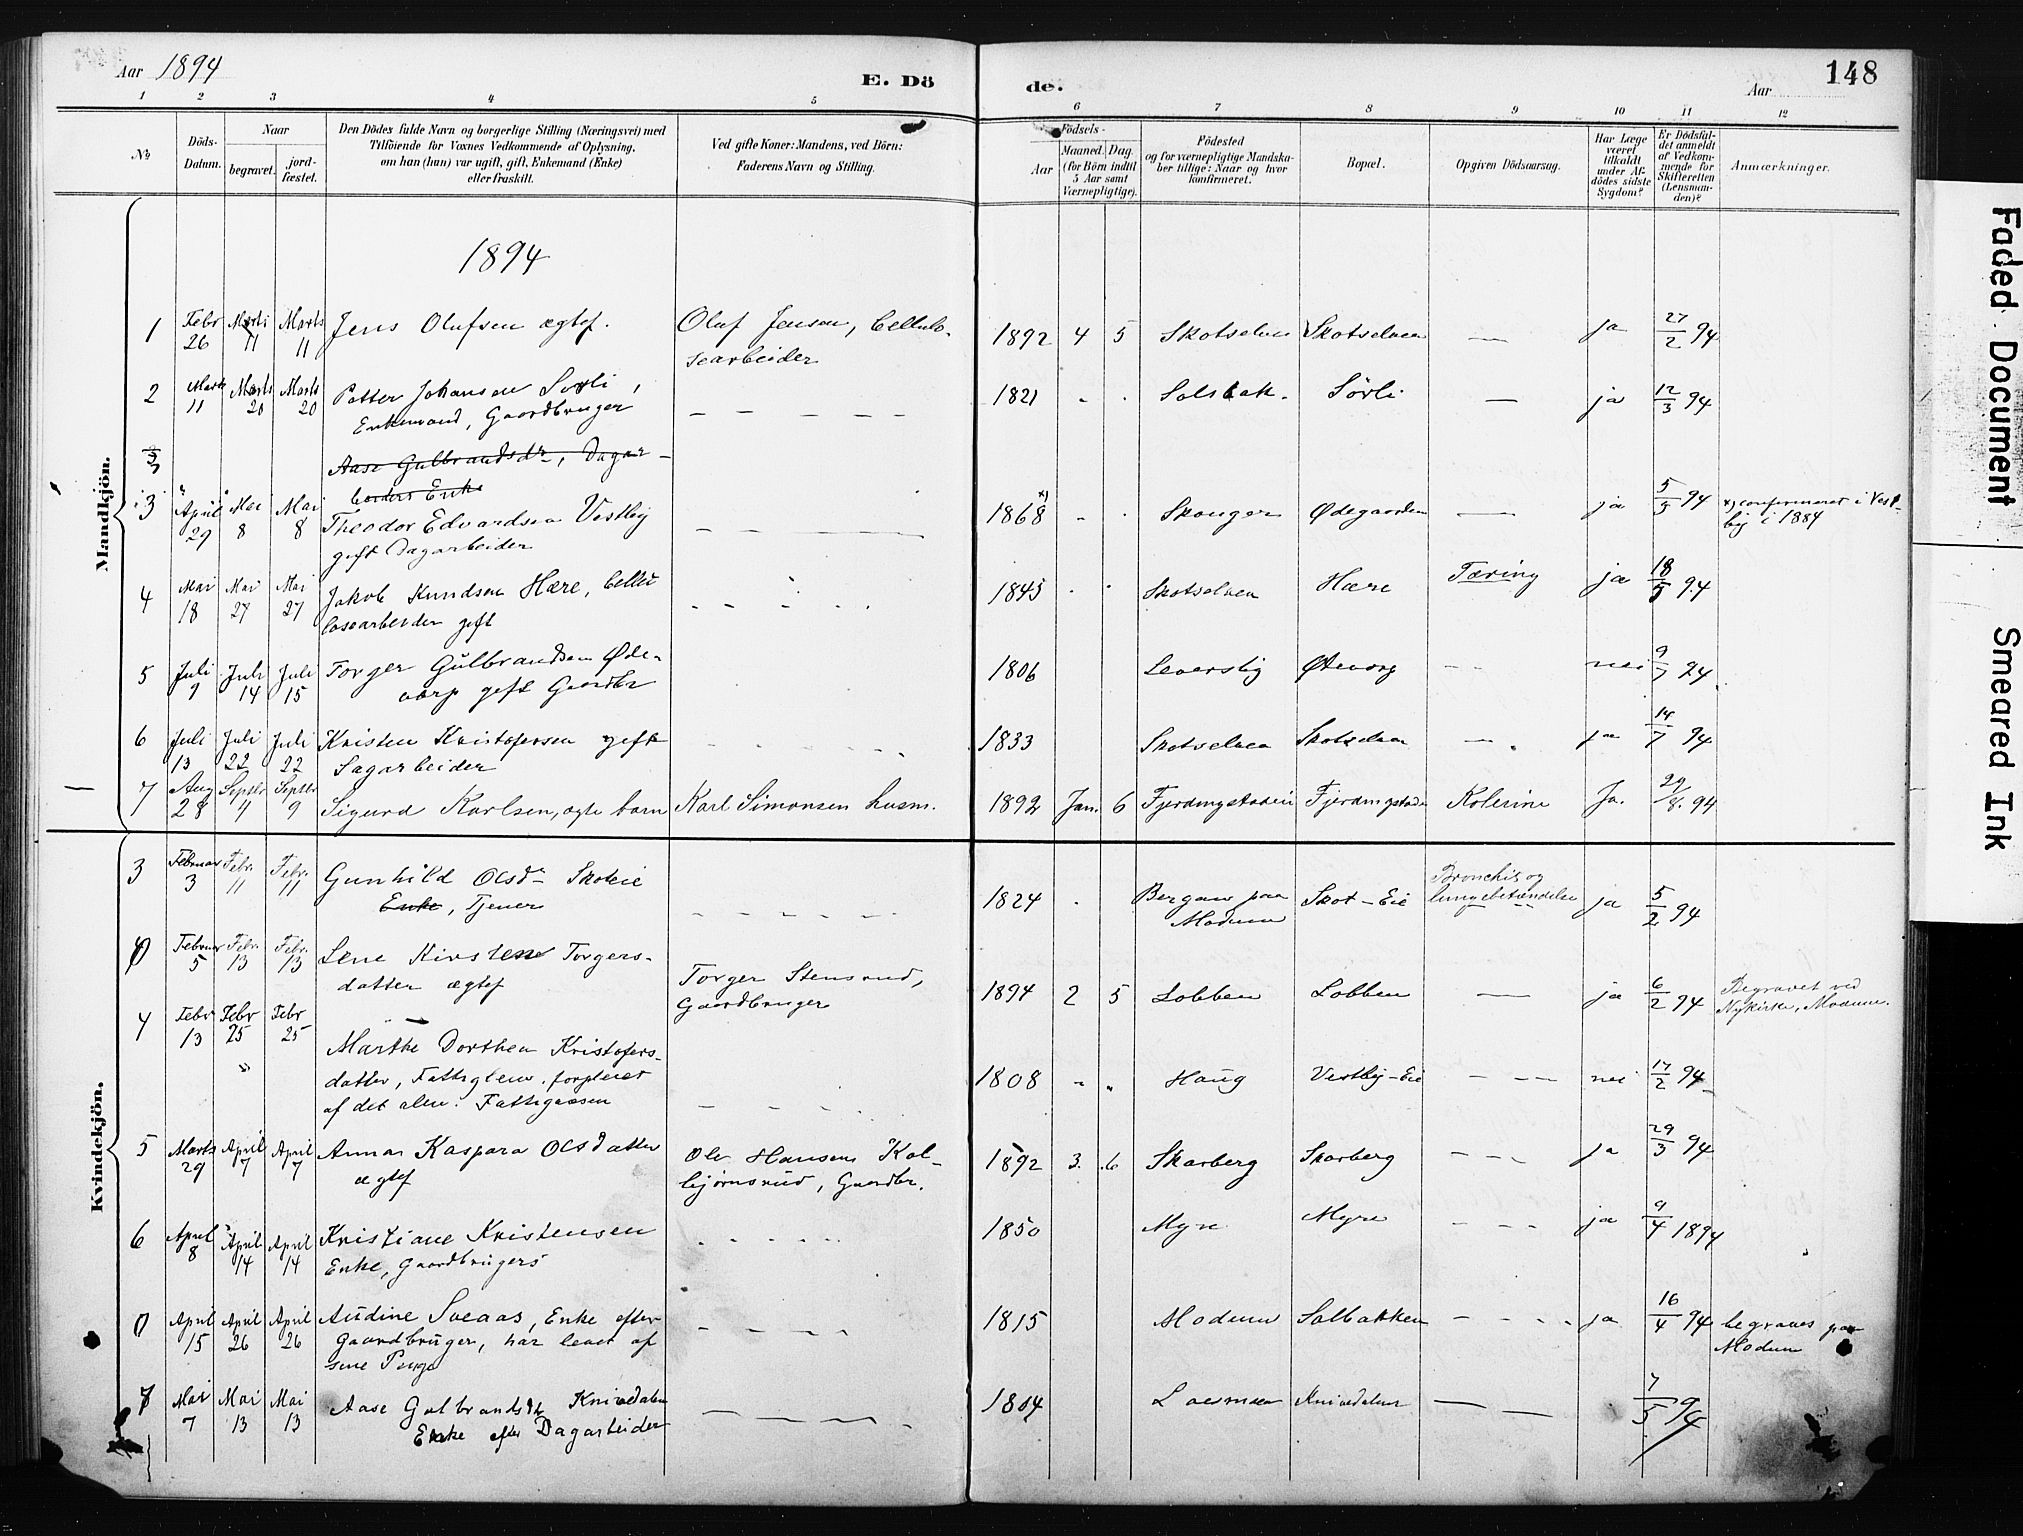 Aar 1894
E. Döde.
Aar
148
1 2 3 4 5 6 7 8 9 10 11 12
No.
Döds-Datum.
Naar
begravet.
jord-fæstet.
Den Dödes fulde Navn og borgerlige Stilling (Næringsvei) med
Tilföiende for Voxnes Vedkommende af Oplysning,
om han (hun) var ugift, gift, Enkemand (Enke)
eller fraskilt.
Ved gifte Koner: Mandens, ved Börn:
Faderens Navn og Stilling.
Födsels-
Aar
Maaned. Dag.
(for Börn indtil
5 Aar samt
Værnepligtige).
Födested
og for værnepligtige Mandska-
ber tillige: Naar og hvor
konfirmeret.
Bopæl.
Opgiven Dödsaarsag.
Har Læge
været
tilkaldt
under Af-
dödes sidste
Sygdom?
Er Dödsfal-
det anmeldt
af Vedkom-
mende for
Skifteretten
(Lensman-
den)?
Anmærkninger.
Mandkjön.
1894
1 Febr 26 Marts 11 Marts 11 Jens Olufsen ægtef. Oluf Jensen, Cellulo-
searbeider 1892 4 5 Skotselven Skotselven — ja 27/2 94
2 Marts 11 Marts 20 Marts 20 Petter Johansen Sørli,
Enkemand, Gaardbruger – – – – – 1821 Solbak. Sörli — ja 12/3 94
Aase Gulbrandsdr, Dagar-
beiders Enke
3 April 29 Mai 8 Mai 8 Theodor Edvardsen Vestby
gift Dagarbeider 1868 x) Skauger Ødegaarden — ja 5/5 94 x) confirmeret i Vest-
by i 1884
4 Mai 18 Mai 27 Mai 27 Jakob Knudsen Hære, Cellu
losearbeider gift 1845 Skotselven Hære Tæring ja 18/5 94
5 Juli 9 Juli 14 Juli 15 Torger Gulbrandsen Øde-
vorp gift Gaardbr 1806 Leversby nei 9/7 94
6 Juli 13 Juli 22 Juli 22 Kristen Kristofersen gift
Sagarbeider 1833 Skotselven Skotselven — ja 14/7 94
7 Aug 28 Septbr 4 Septbr 9 Sigurd Karlsen, ægte barn Karl Simonsen husm. 1892 Jan. 6 Fjerdingstadeie Fjerdingstade Kolerine Ja. 29/8. 94
Kvindekjön.
3 Februar 3 Febr. 11 Febr. 11 Gunhild Olsdr Skoteie
Enke, Tjener 1824 Bergan paa
Modum Skot-Eie Bronchit og
lungebetændelse ja 5/2 94
0 Februar 5 Febr. 13 Febr. 13 Lene Kirstene Torgers-
datter ægtef Torger Stensrud,
Gaardbruger 1894 2 5 Lobben Lobben — ja 6/2 94 Begravet ved
Nykirke, Modum.
4 Febr 13 Febr 25 Febr 25 Marthe Dorthea Kristofers-
datter, Fattiglem. forpleiet
af det alm. Fattigvæsen 1808 Haug Vestby-Eie – – – nei 17/2 94
5 Marts 29 April 7 April 7 Anna Kaspara Olsdatter
ægtef Ole Hansen Kol-
bjørnsrud, Gaardbr. 1892 3. 6 Skarberg Skarberg – – – ja 29/3 94
6 April 8 April 14 April 14 Kristiane Kristensen
Enke, Gaardbrugers 1850 Myre Myre – – – ja 9/4 1894
0 April 15 April 26 April 26 Audine Sveaas, Enke efter
Gaardbruger, har levet af
sine Penge 1815 Modum Solbakken – – – ja 16/4 94 begraves paa
Modum
7 Mai 7 Mai 13 Mai 13 Aase Gulbrandsdtr Knivedalen
Enke efter Dagarbeider 1804 Knivedalen — — 7/5 94
Faded Document
Smeared Ink